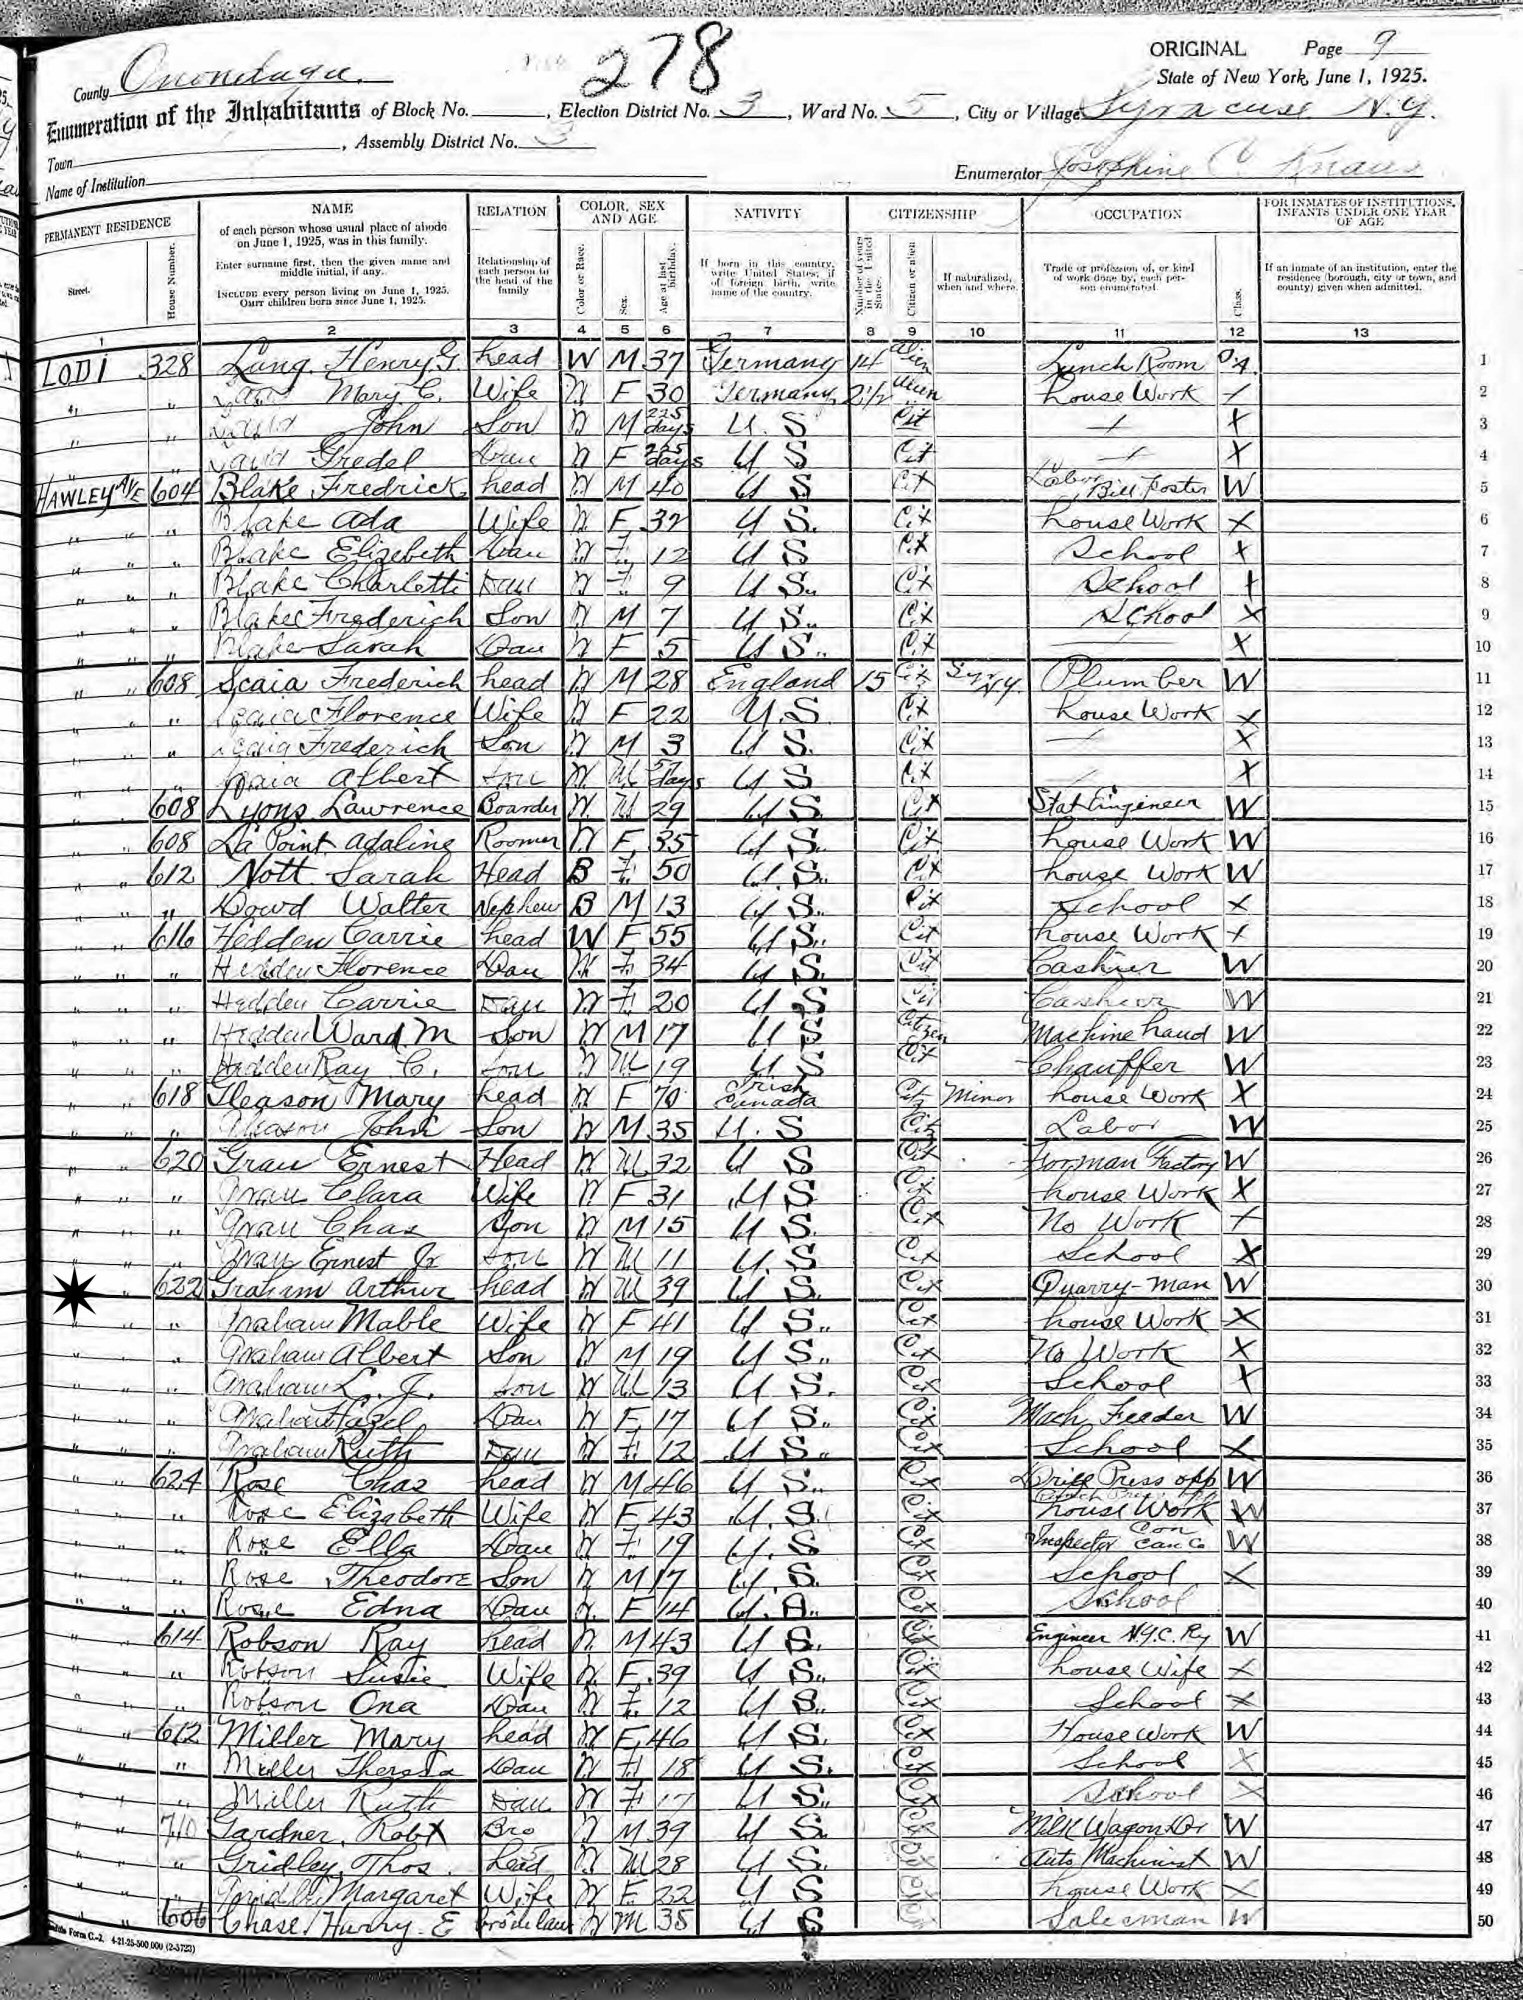 278
ORIGINAL Page 9
County Onondaga
State of New York, June 1, 1925.
Enumeration of the Inhabitants of Block No. , Election District No. 3 , Ward No. 5 , City or Village Syracuse N.Y.
Town , Assembly District No. 3
Name of Institution Enumerator Josephine C. Knaus
PERMANENT RESIDENCE
Street.
House Number.
NAME
of each person whose usual place of abode on June 1, 1925, was in this family.
Enter surname first, then the given name and middle initial, if any.
INCLUDE every person living on June 1, 1925.
OMIT children born since June 1, 1925.
RELATION
Relationship of each person to the head of the family
COLOR, SEX AND AGE
Color or Race.
Sex.
Age at last birthday.
NATIVITY
If born in this country, write United States; if of foreign birth, write name of the country.
CITIZENSHIP
Number of years in the United States.
Citizen or alien
If naturalized, when and where.
OCCUPATION
Trade or profession of, or kind of work done by, each person enumerated.
Class.
FOR INMATES OF INSTITUTIONS, INFANTS UNDER ONE YEAR OF AGE
If an inmate of an institution, enter the residence (borough, city or town, and county) given when admitted.
1 2 3 4 5 6 7 8 9 10 11 12 13
LODI 328 Lang Henry G. head W M 37 Germany 14 Alien Lunch Room O.A. 1
" " Mary C. Wife W F 30 Germany 2 1/2 Alien house Work x 2
" " John Son W M 225 days U. S Cit — X 3
" " Gredel Dau W F 225 days U S Cit — X 4
HAWLEY AVE 604 Blake Fredrick head W M 40 U S Cit Labor Bill Poster W 5
" " " Blake Ada Wife W F 32 U S. Cit house Work X 6
" " " Blake Elizebeth Dau W F 12 U S Cit School X 7
" " " Blake Charlotti Dau W F 9 U S.. Cit School X 8
" " " Blake Frederich Son W M 7 U S.. Cit School X 9
" " " Blake Sarah Dau W F 5 U S.. Cit — X 10
" " 608 Scaia Frederich head W M 28 England 15 Cit Syr N.Y. Plumber W 11
" " " Scaia Florence Wife W F 22 U.S. Cit house Work X 12
" " " Scaia Frederich Son W M 3 U S. Cit — X 13
" " " Scaia Albert Son W M 57 days U S Cit X 14
" " 608 Lyons Lawrence Boarder W M 29 U S. Cit Stat Engineer W 15
" " 608 La Point Adaline Roomer W F 35 U S. Cit house Work W 16
" " 612 Nott Sarah Head B F 50 U. S.. Cit house Work W 17
" " " Dowd Walter Nephew B M 13 U S.. Cit School X 18
" " 616 Hedden Carrie head W F 55 U S.. Cit house Work X 19
" " " Hedden Florence Dau W F 34 U S. Cit Cashier W 20
" " " Hedden Carrie Dau W F 20 U S Cit Cashier W 21
" " " Hedden Ward. M Son W M 17 U S Citizen Machine hand W 22
" " " Hedden Ray C. Son W M 19 U S Cit Chauffer W 23
" " 618 Gleason Mary head W F 70 Irish Canada Citz Minor house Work X 24
" " " Gleason John Son W M 35 U. S Citz Labor W 25
" " 620 Grau Ernest Head W M 32 U S Cit Forman Factory W 26
" " " Grau Clara Wife W F 31 U S Cit house Work X 27
" " " Grau Chas Son W M 15 U S. Cit No Work X 28
" " " Grau Ernest Jr Son W M 11 U. S. Cit School X 29
" 622 Graham Arthur head W M 39 U S. Cit Quarry-man W 30
" " " Graham Mable Wife W F 41 U S.. Cit house Work X 31
" " " Graham Albert Son W M 19 U S.. Cit No Work X 32
" " " Graham L. J. Son W M 13 U S. Cit School X 33
" " " Graham Hazel Dau W F 17 U S.. Cit Mach. Feeder W 34
" " " Graham Ruth Dau W F 12 U S.. Cit School X 35
" " 624 Rose Chas head W M 46 U S.. Cit Drill Press opp W 36
" " " Rose Elizabeth Wife W F 43 U. S. Cit house Work W 37
" " " Rose Ella Dau W F 19 U. S Cit Inspector Con Can Co W 38
" " " Rose Theodore Son W M 17 U. S. Cit School X 39
" " " Rose Edna Dau W F 14 U. S.. Cit School 40
" " 614 Robson Ray head W M 43 U S. Cit Engineer N.Y.C. Ry W 41
" " " Robson Susie Wife W F 39 U S.. Cit house Wife X 42
" " " Robson Ona Dau W F 12 U S.. Cit School X 43
" " 612 Miller Mary head W F 46 U S. Cit House Work W 44
" " " Miller Theresa Dau W F 18 U S. Cit School X 45
" " " Miller Ruth Dau W F 17 U S.. Cit School X 46
" " 710 Gardner, Robt Bro W M 39 U S. Cit Milk Wagon Dr W 47
" " " Gridley, Thos. head W M 28 U S. Cit Auto Machinist W 48
" " " Gridley Margaret Wife W F 22 U S Cit house Work X 49
" " 606 Chase, Harry. E bro in law W M 35 U S Cit Salesman W 50
Form C-2. 4-21-25-500,000 (2-3723)